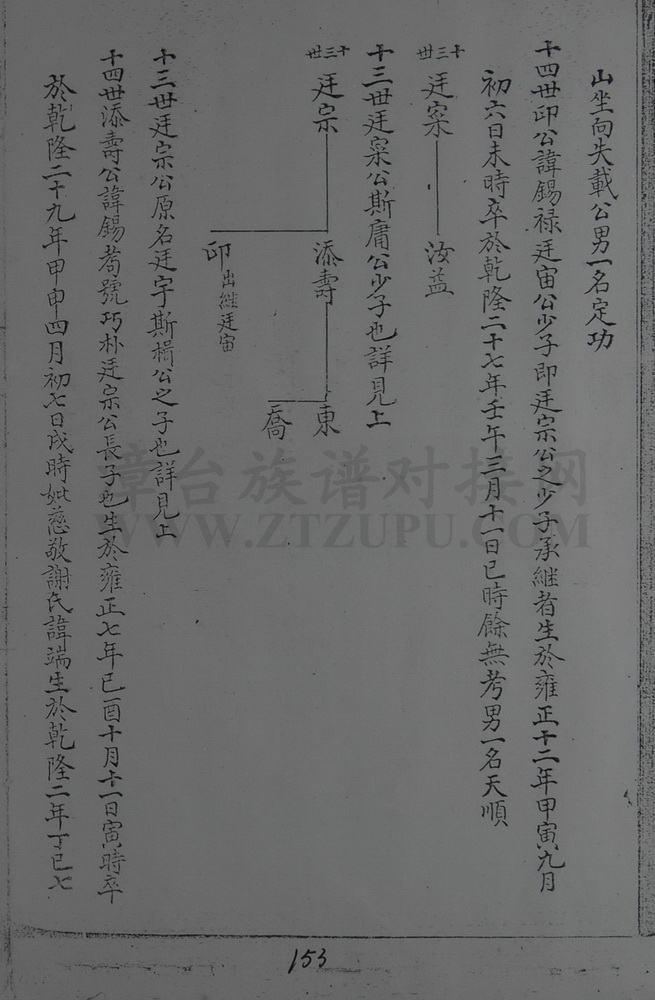 山坐向失載公男一名定功
十四世印公諱錫禄廷宙公少子即廷宗公之少子承継者生於雍正十二年甲寅九月
初六日未時卒於乾隆二十七年壬午三月十一日巳時餘無考男一名天順
十三世
廷寀
汝益
十三世廷寀公斯庸公少子也詳見上
十三世
廷宗
添壽
東
喬
印
出継廷宙
十三世廷宗公原名廷宇斯楫公之子也詳見上
十四世添壽公諱錫耈號巧朴廷宗公長子也生於雍正七年己酉十月十一日寅時卒
於乾隆二十九年甲申四月初七日戌時妣慈敬謝氏諱端生於乾隆二年丁巳七
漳台族谱对接网
WWW.ZTZUPU.COM
153